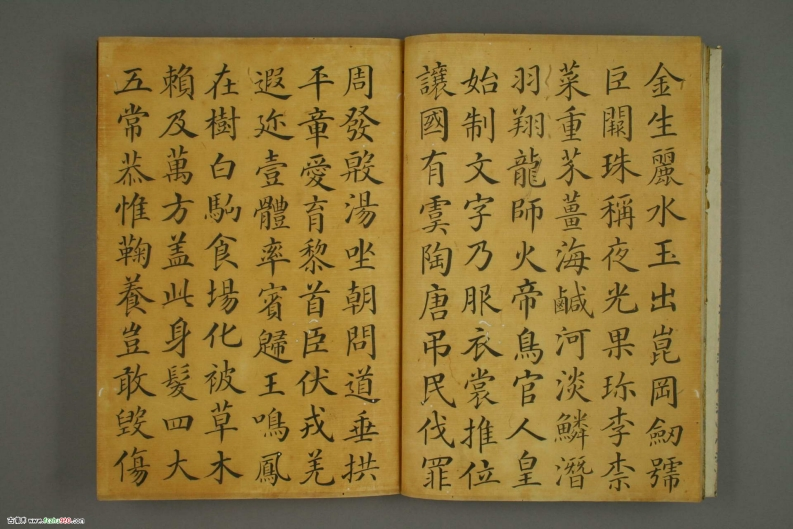 金生麗水玉出崑岡劒號
巨闕珠稱夜光果珎李柰
菜重芥薑海鹹河淡鱗潛
羽翔龍師火帝鳥官人皇
始制文字乃服衣裳推位
讓國有虞陶唐吊民伐罪
周發殷湯坐朝問道垂拱
平章愛育黎首臣伏戎羌
遐迩壹體率賓歸王鳴鳳
在樹白駒食場化被草木
賴及萬方盖此身髮四大
五常恭惟鞠養豈敢毀傷